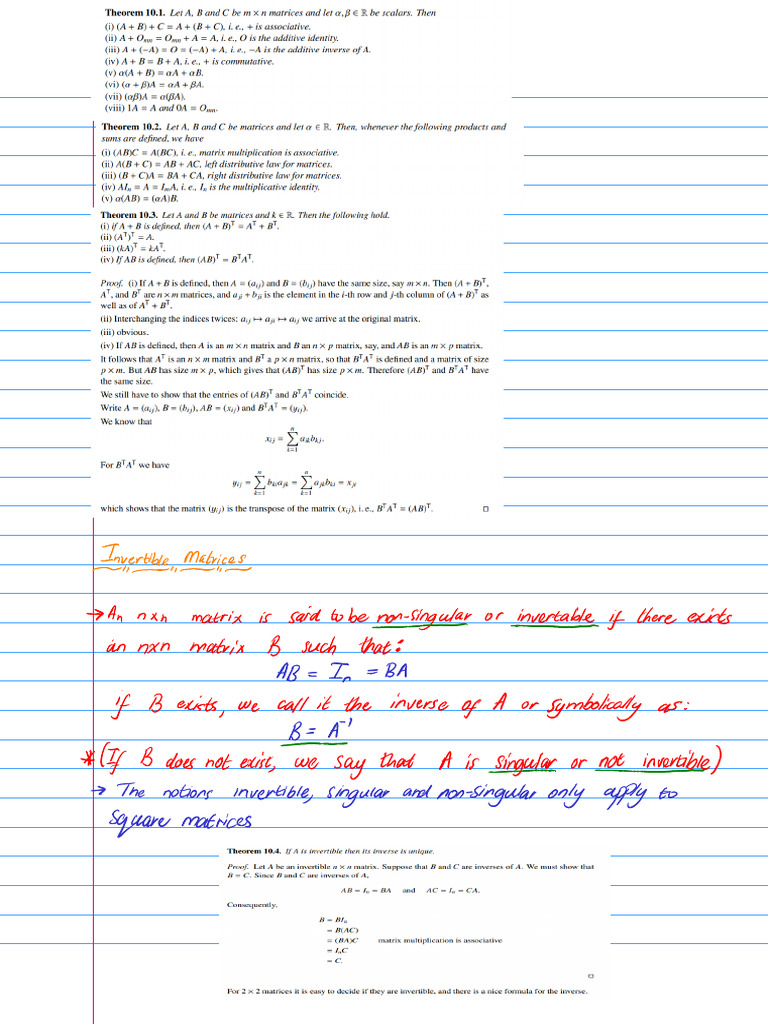 Theorem 10.1. Let A, B and C be m × n matrices and let α, β ∈ ℝ be scalars. Then
(i) (A + B) + C = A + (B + C), i. e., + is associative.
(ii) A + Oₘₙ = Oₘₙ + A = A, i. e., O is the additive identity.
(iii) A + (−A) = O = (−A) + A, i. e., −A is the additive inverse of A.
(iv) A + B = B + A, i. e., + is commutative.
(v) α(A + B) = αA + αB.
(vi) (α + β)A = αA + βA.
(vii) (αβ)A = α(βA).
(viii) 1A = A and 0A = Oₘₙ.
Theorem 10.2. Let A, B and C be matrices and let α ∈ ℝ. Then, whenever the following products and
sums are defined, we have
(i) (AB)C = A(BC), i. e., matrix multiplication is associative.
(ii) A(B + C) = AB + AC, left distributive law for matrices.
(iii) (B + C)A = BA + CA, right distributive law for matrices.
(iv) AIₙ = A = IₘA, i. e., Iₙ is the multiplicative identity.
(v) α(AB) = (αA)B.
Theorem 10.3. Let A and B be matrices and k ∈ ℝ. Then the following hold.
(i) if A + B is defined, then (A + B)ᵀ = Aᵀ + Bᵀ.
(ii) (Aᵀ)ᵀ = A.
(iii) (kA)ᵀ = kAᵀ.
(iv) If AB is defined, then (AB)ᵀ = BᵀAᵀ.
Proof. (i) If A + B is defined, then A = (aᵢⱼ) and B = (bᵢⱼ) have the same size, say m × n. Then (A + B)ᵀ,
Aᵀ, and Bᵀ are n × m matrices, and aⱼᵢ + bⱼᵢ is the element in the i-th row and j-th column of (A + B)ᵀ as
well as of Aᵀ + Bᵀ.
(ii) Interchanging the indices twices: aᵢⱼ ↦ aⱼᵢ ↦ aᵢⱼ we arrive at the original matrix.
(iii) obvious.
(iv) If AB is defined, then A is an m × n matrix and B an n × p matrix, say, and AB is an m × p matrix.
It follows that Aᵀ is an n × m matrix and Bᵀ a p × n matrix, so that BᵀAᵀ is defined and a matrix of size
p × m. But AB has size m × p, which gives that (AB)ᵀ has size p × m. Therefore (AB)ᵀ and BᵀAᵀ have
the same size.
We still have to show that the entries of (AB)ᵀ and BᵀAᵀ coincide.
Write A = (aᵢⱼ), B = (bᵢⱼ), AB = (xᵢⱼ) and BᵀAᵀ = (yᵢⱼ).
We know that
xᵢⱼ = ∑ₖ₌₁ⁿ aᵢₖbₖⱼ.
For BᵀAᵀ we have
yᵢⱼ = ∑ₖ₌₁ⁿ bₖᵢaⱼₖ = ∑ₖ₌₁ⁿ aⱼₖbₖᵢ = xⱼᵢ
which shows that the matrix (yᵢⱼ) is the transpose of the matrix (xᵢⱼ), i. e., BᵀAᵀ = (AB)ᵀ. □
Invertible Matrices
→ An nxn matrix is said to be non-singular or invertable if there exists
an nxn matrix B such that:
AB = Iₙ = BA
if B exists, we call it the inverse of A or symbolically as:
B = A⁻¹
* (If B does not exist, we say that A is singular or not invertible)
→ The notions invertible, singular and non-singular only apply to
square matrices
Theorem 10.4. If A is invertible then its inverse is unique.
Proof. Let A be an invertible n × n matrix. Suppose that B and C are inverses of A. We must show that
B = C. Since B and C are inverses of A,
AB = Iₙ = BA and AC = Iₙ = CA.
Consequently,
B = BIₙ
= B(AC)
= (BA)C matrix multiplication is associative
= IₙC
= C.
□
For 2 × 2 matrices it is easy to decide if they are invertible, and there is a nice formula for the inverse.